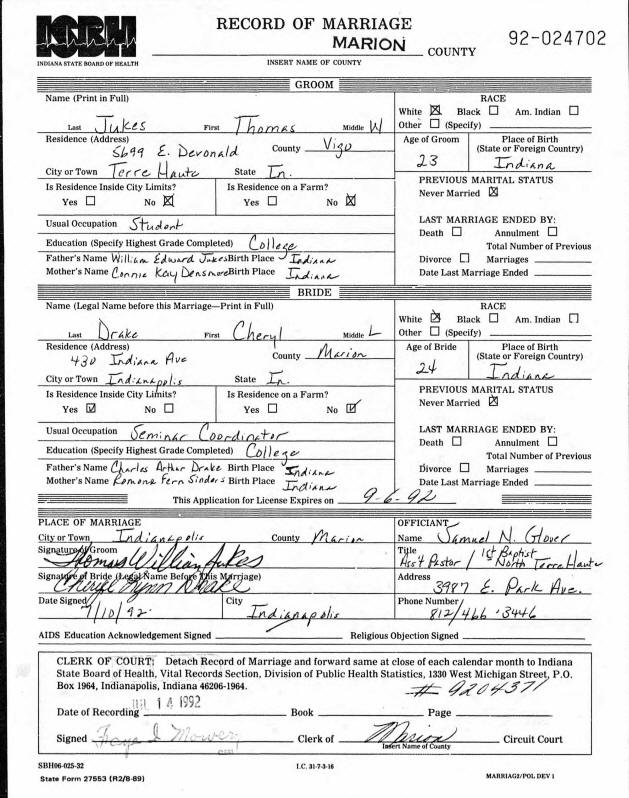 ISBH
INDIANA STATE BOARD OF HEALTH
RECORD OF MARRIAGE
MARION COUNTY
INSERT NAME OF COUNTY
92-024702
GROOM
Name (Print in Full)
Last Jukes First Thomas Middle W
RACE
White ☒ Black ☐ Am. Indian ☐
Other ☐ (Specify)
Residence (Address)
5699 E. Devonald County Vigo
City or Town Terre Haute State In.
Age of Groom
23
Place of Birth
(State or Foreign Country)
Indiana
Is Residence Inside City Limits?
Yes ☐ No ☒
Is Residence on a Farm?
Yes ☐ No ☒
PREVIOUS MARITAL STATUS
Never Married ☒
Usual Occupation Student
Education (Specify Highest Grade Completed) College
Father's Name William Edward Jukes Birth Place Indiana
Mother's Name Connie Kay Densmore Birth Place Indiana
LAST MARRIAGE ENDED BY:
Death ☐ Annulment ☐
Total Number of Previous
Divorce ☐ Marriages
Date Last Marriage Ended
BRIDE
Name (Legal Name before this Marriage—Print in Full)
Last Drake First Cheryl Middle L
RACE
White ☒ Black ☐ Am. Indian ☐
Other ☐ (Specify)
Residence (Address)
430 Indiana Ave County Marion
City or Town Indianapolis State In.
Age of Bride
24
Place of Birth
(State or Foreign Country)
Indiana
Is Residence Inside City Limits?
Yes ☑ No ☐
Is Residence on a Farm?
Yes ☐ No ☑
PREVIOUS MARITAL STATUS
Never Married ☒
Usual Occupation Seminar Coordinator
Education (Specify Highest Grade Completed) College
Father's Name Charles Arthur Drake Birth Place Indiana
Mother's Name Romona Fern Sinders Birth Place Indiana
LAST MARRIAGE ENDED BY:
Death ☐ Annulment ☐
Total Number of Previous
Divorce ☐ Marriages
Date Last Marriage Ended
This Application for License Expires on 9-6-92
PLACE OF MARRIAGE
City or Town Indianapolis County Marion
Signature of Groom
Thomas William Jukes
Signature of Bride (Legal Name Before This Marriage)
Cheryl Lynn Drake
Date Signed
7/10/92
City
Indianapolis
OFFICIANT
Name Samuel N. Glover
Title
Ass't Pastor / 1st Baptist
North Terre Haute
Address
3987 E. Park Ave.
Phone Number
812/466-3446
AIDS Education Acknowledgement Signed
Religious Objection Signed
CLERK OF COURT: Detach Record of Marriage and forward same at close of each calendar month to Indiana
State Board of Health, Vital Records Section, Division of Public Health Statistics, 1330 West Michigan Street, P.O.
Box 1964, Indianapolis, Indiana 46206-1964.
# 9204371
Date of Recording JUL 14 1992 Book Page
Signed Faye I Mowery Clerk of Marion Circuit Court
Insert Name of County
SBH06-025-32
State Form 27553 (R2/8-89)
I.C. 31-7-3-16
MARRIAG2/POL DEV 1